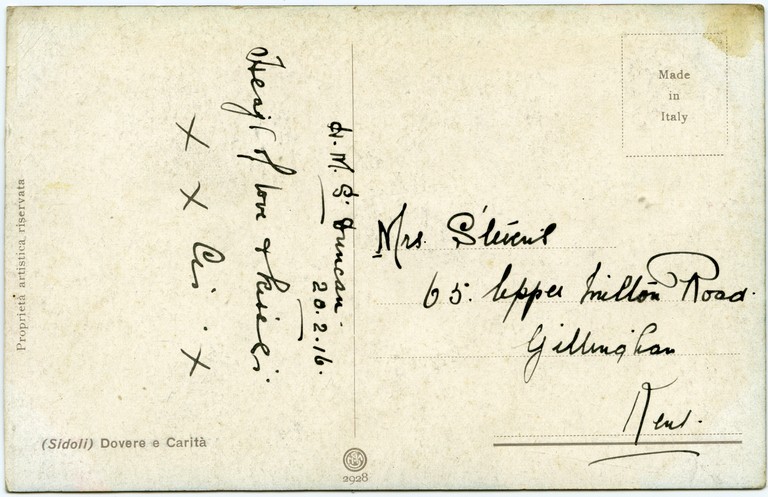 H.M.S. Duncan.
20.2.16.
Heaps of love & kisses
X X Cis. X
Mrs. Stevens
65. Upper Milton Road.
Gillingham
Kent.
Made
in
Italy
Proprietà artistica riservata
(Sidoli) Dovere e Carità
2928